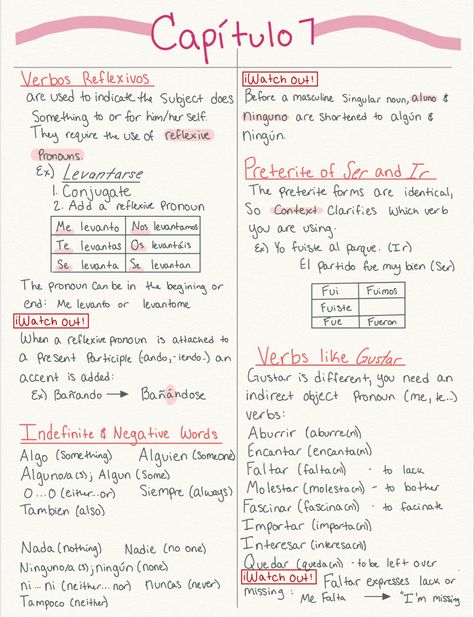 Capítulo 7
Verbos Reflexivos
are used to indicate the Subject does
Something to or for him/her self.
They require the use of reflexive
Pronouns.
Ex) Levantarse
1. Conjugate
2. Add a reflexive Pronoun
Me levanto Nos levantamos
Te levantas Os levantáis
Se levanta Se levantan
The pronoun can be in the begining or
end: Me levanto or levantome
¡Watch out!
When a reflexive pronoun is attached to
a Present Participle (-ando, -iendo.) an
accent is added:
Ex) Bañando → Bañándose
Indefinite & Negative Words
Algo (Something) Alguien (Someone)
Alguno/a(s); Algun (Some)
O...O (either...or) Siempre (always)
Tambien (also)
Nada (nothing) Nadie (no one)
Ninguno/a(s); ningún (none)
ni...ni (neither...nor) nuncas (never)
Tampoco (neither)
¡Watch out!
Before a masculine Singular noun, aluno &
ninguno are shortened to algún &
ningún.
Preterite of Ser and Ir
The preterite forms are identical,
So Context Clarifies which verb
you are using.
Ex) Yo fuiste al parque. (Ir)
El partido fue muy bien (Ser)
Fui Fuimos
Fuiste
Fue Fueron
Verbs like Gustar
Gustar is different, you need an
indirect object Pronoun (me, te...)
verbs:
Aburrir (aburre(n))
Encantar (encanta(n))
Faltar (falta(n)) - to lack
Molestar (molesta(n)) - to bother
Fascinar (fascina(n)) - to facinate
Importar (importa(n))
Interesar (interesa(n))
Quedar (queda(n)) - to be left over
¡Watch out! Faltar expresses lack or
missing: Me Falta → "I'm missing